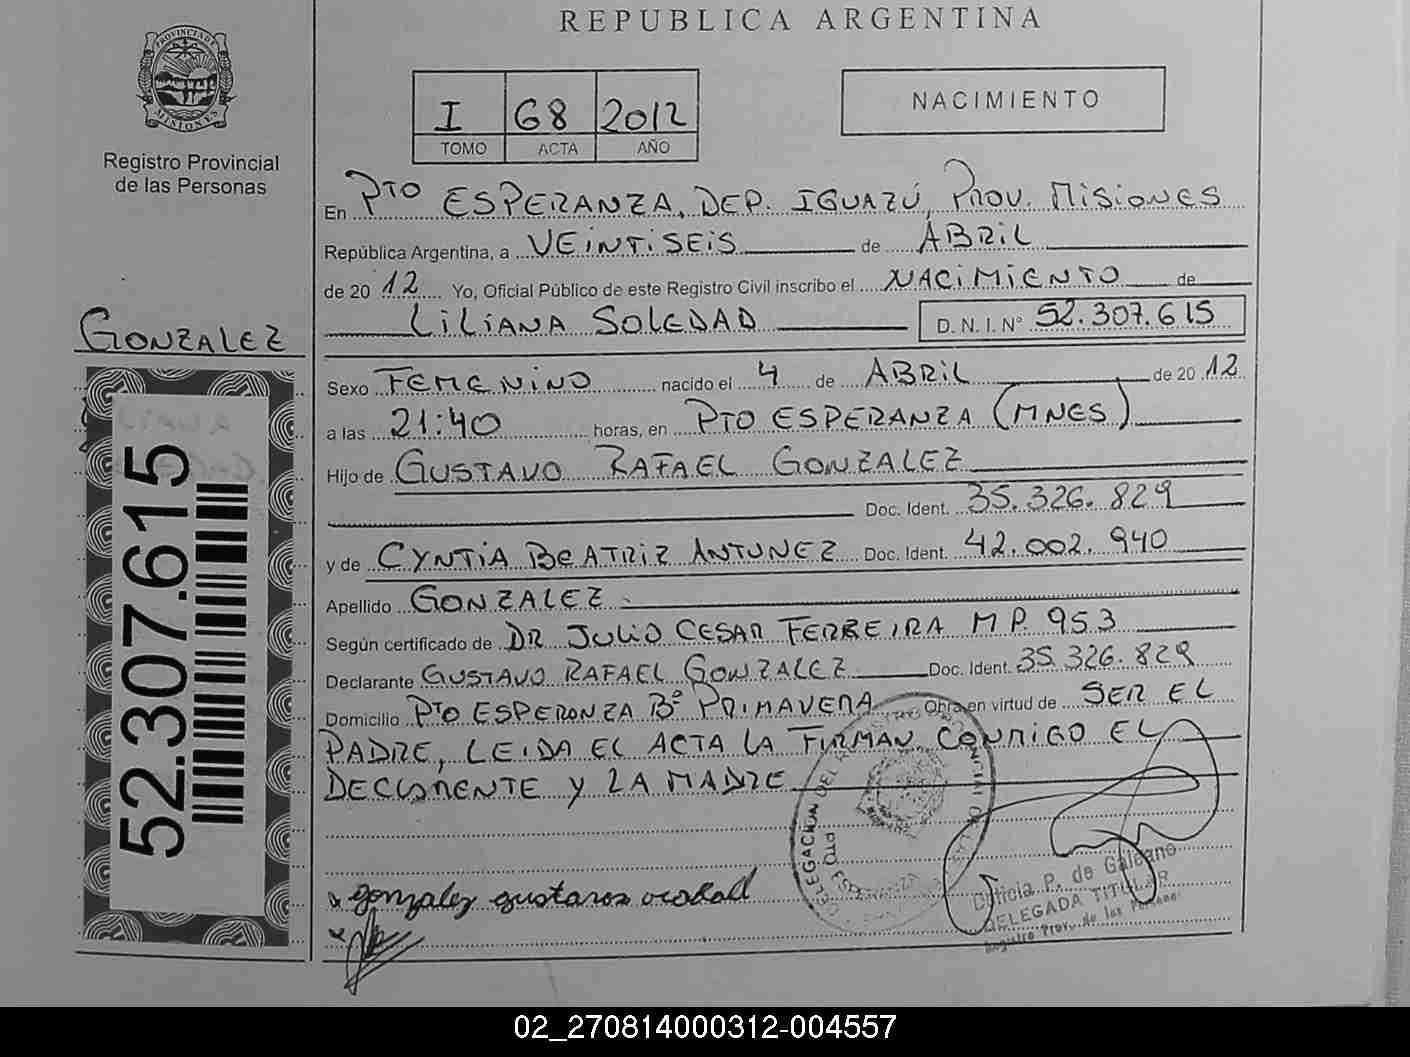 REPUBLICA ARGENTINA
PROVINCIA DE MISIONES
Registro Provincial
de las Personas
I G8 2012
TOMO ACTA AÑO
NACIMIENTO
En PTO ESPERANZA, DEP. IGUAZÚ, PROV. MISIONES
República Argentina, a VEINTISEIS de ABRIL
de 2012 Yo, Oficial Público de este Registro Civil inscribo el NACIMIENTO de
LILIANA SOLEDAD D. N. I. Nº 52.307.615
GONZALEZ
Sexo FEMENINO nacido el 4 de ABRIL de 2012
a las 21:40 horas, en PTO ESPERANZA (MNES)
Hijo de GUSTAVO RAFAEL GONZALEZ
Doc. Ident. 35.326.829
y de CYNTIA BEATRIZ ANTUNEZ Doc. Ident. 42.002.940
Apellido GONZALEZ
Según certificado de DR JULIO CESAR FERREIRA MP. 953
Declarante GUSTAVO RAFAEL GONZALEZ Doc. Ident. 35.326.829
Domicilio PTO ESPERONZA Bº PRIMAVERA Obra en virtud de SER EL
PADRE, LEIDA EL ACTA LA FIRMAN CONMIGO EL
DECLARENTE Y LA MADRE
52.307.615
DELEGACION DEL
PTO ESPERANZA
gonzalez gustavo
Leticia P. de Galeano
DELEGADA TITULAR
Registro Prov. de las Personas
02_270814000312-004557